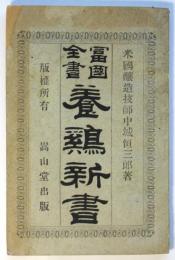 米國釀造技師中城恒三郎著
富國全書
養鷄新書
版權所有
嵩山堂出版